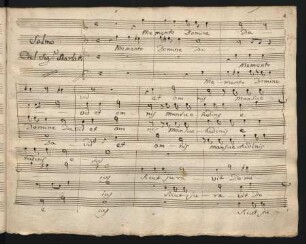 Memento Domine Da
Salmo
Memento Domine Da
Del Sigr. Scarlatti
Memento
Memento Domine
vid et omnis Mansue
vid et omnis Mansuetudinis e
Domine David et omnis Mansuetudinis
David et omnis mansuetudinis
tudinis ejus
jus sicut jura vit Domi
jus sicut jura vit Do
e jus sicut ju